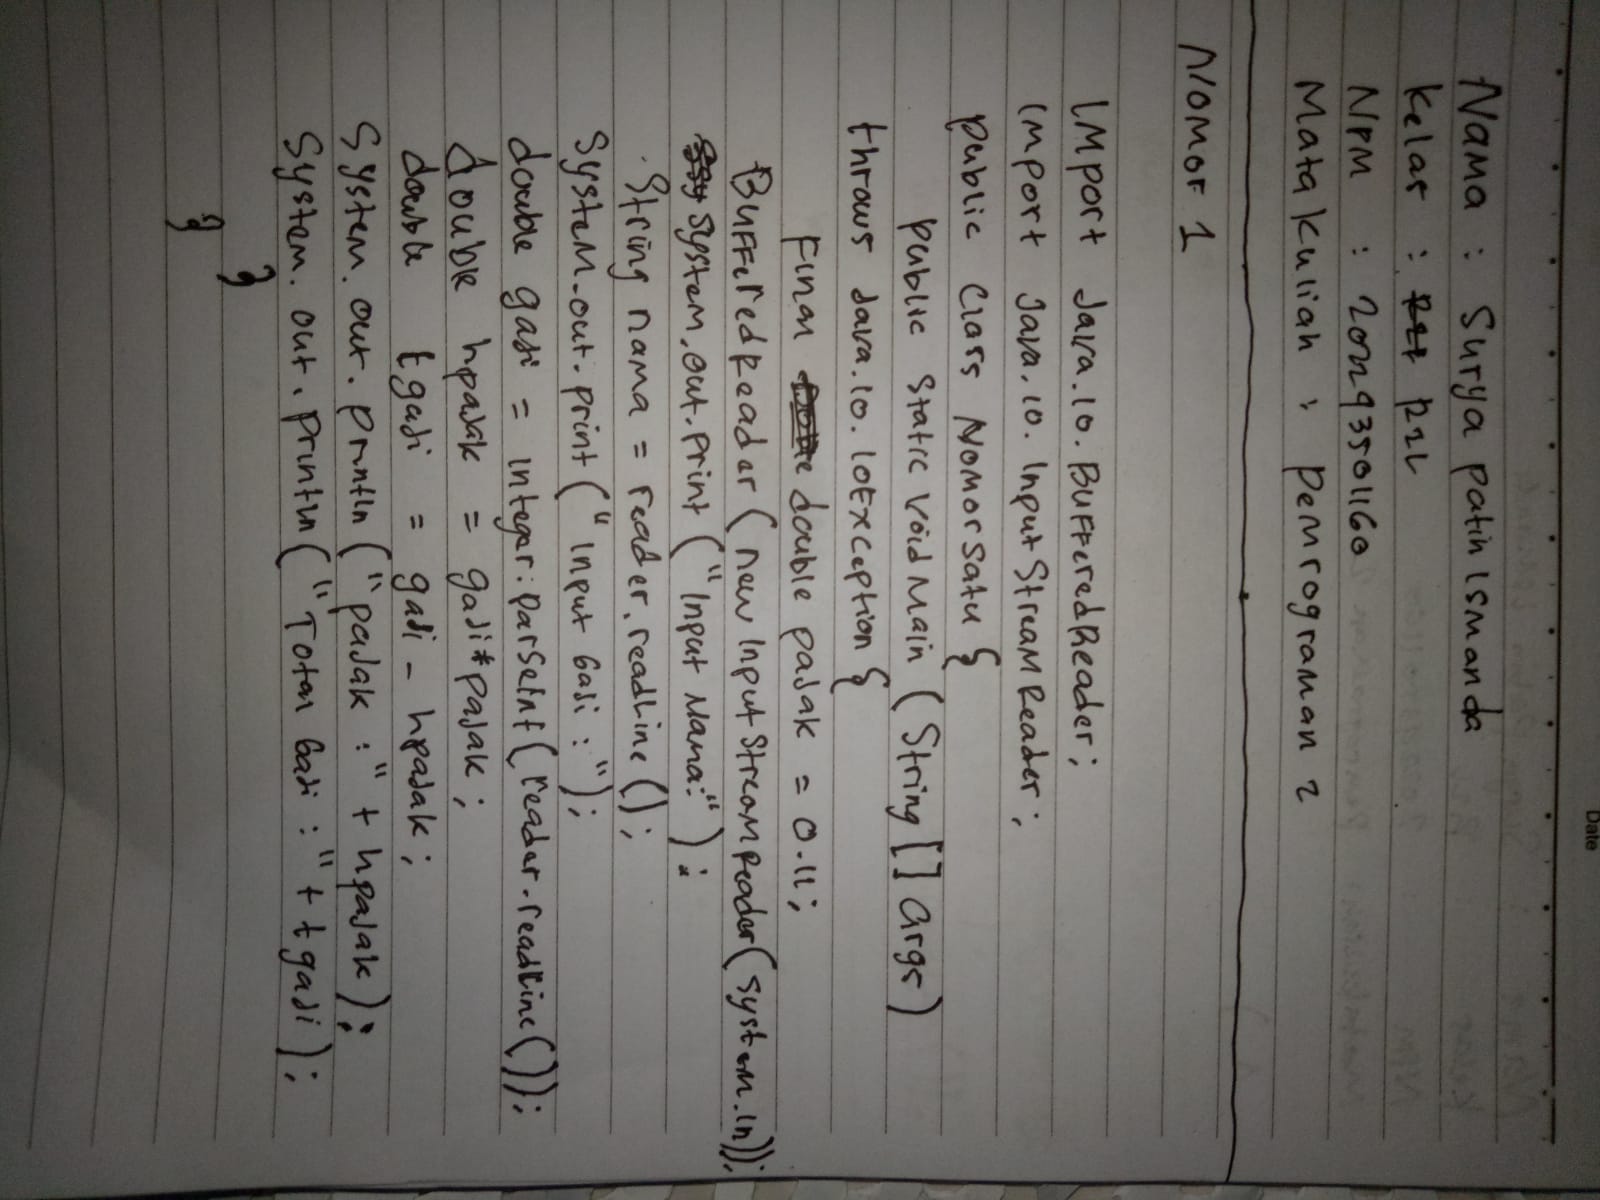 Date
Nama : Surya patih Ismanda
Kelas : P2L
NPM : 202943501160
Mata kuliah : Pemrograman 2
Nomor 1
import Java.io.BufferedReader;
import Java.io.InputStreamReader;
public Class NomorSatu {
public static void main (String [] args)
throws Java.io.IoException {
Final double pajak = 0.11;
BufferedReader (new InputStreamReader(System.in));
System.out.print ("Input Nama:");
String nama = reader.readLine ();
System.out.print ("Input Gaji : ");
double gaji = integer.parseint (reader.readline());
double hpajak = gaji * pajak;
double tgaji = gaji - hpajak;
System.out.println ("pajak : " + hpajak);
System.out.println ("Total Gaji : " + tgaji);
}
}